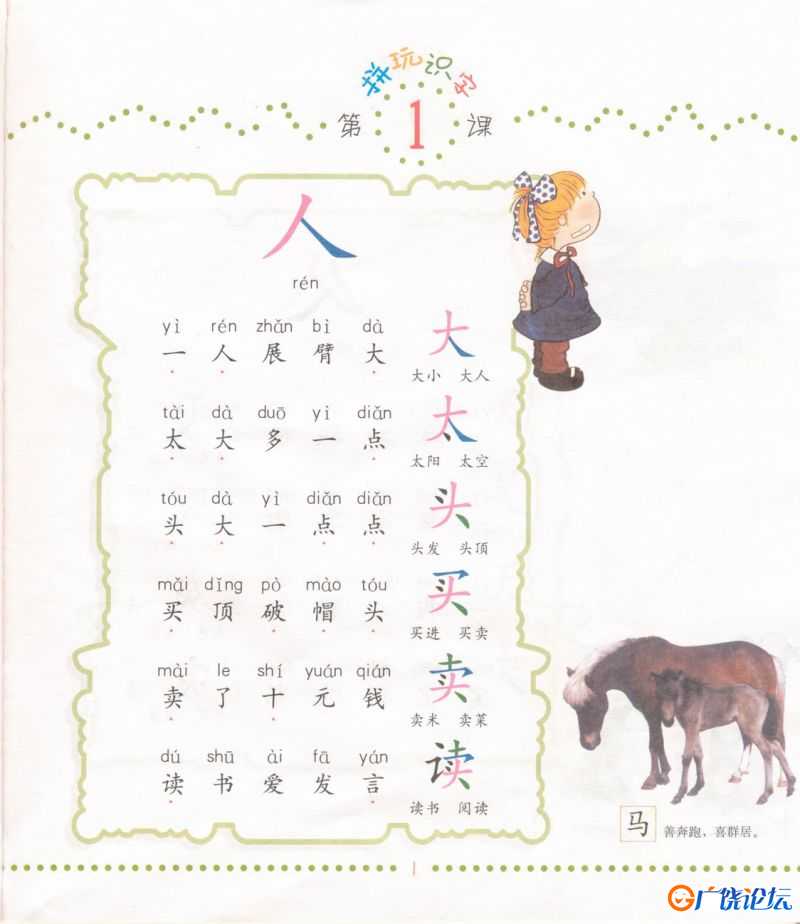 拼玩识字
第 1 课
人
rén
yì rén zhǎn bì dà
一 人 展 臂 大
大
大小 大人
tài dà duō yì diǎn
太 大 多 一 点
太
太阳 太空
tóu dà yì diǎn diǎn
头 大 一 点 点
头
头发 头顶
mǎi dǐng pò mào tóu
买 顶 破 帽 头
买
买进 买卖
mài le shí yuán qián
卖 了 十 元 钱
卖
卖米 卖菜
dú shū ài fā yán
读 书 爱 发 言
读
读书 阅读
马
善奔跑，喜群居。
1
广饶论坛